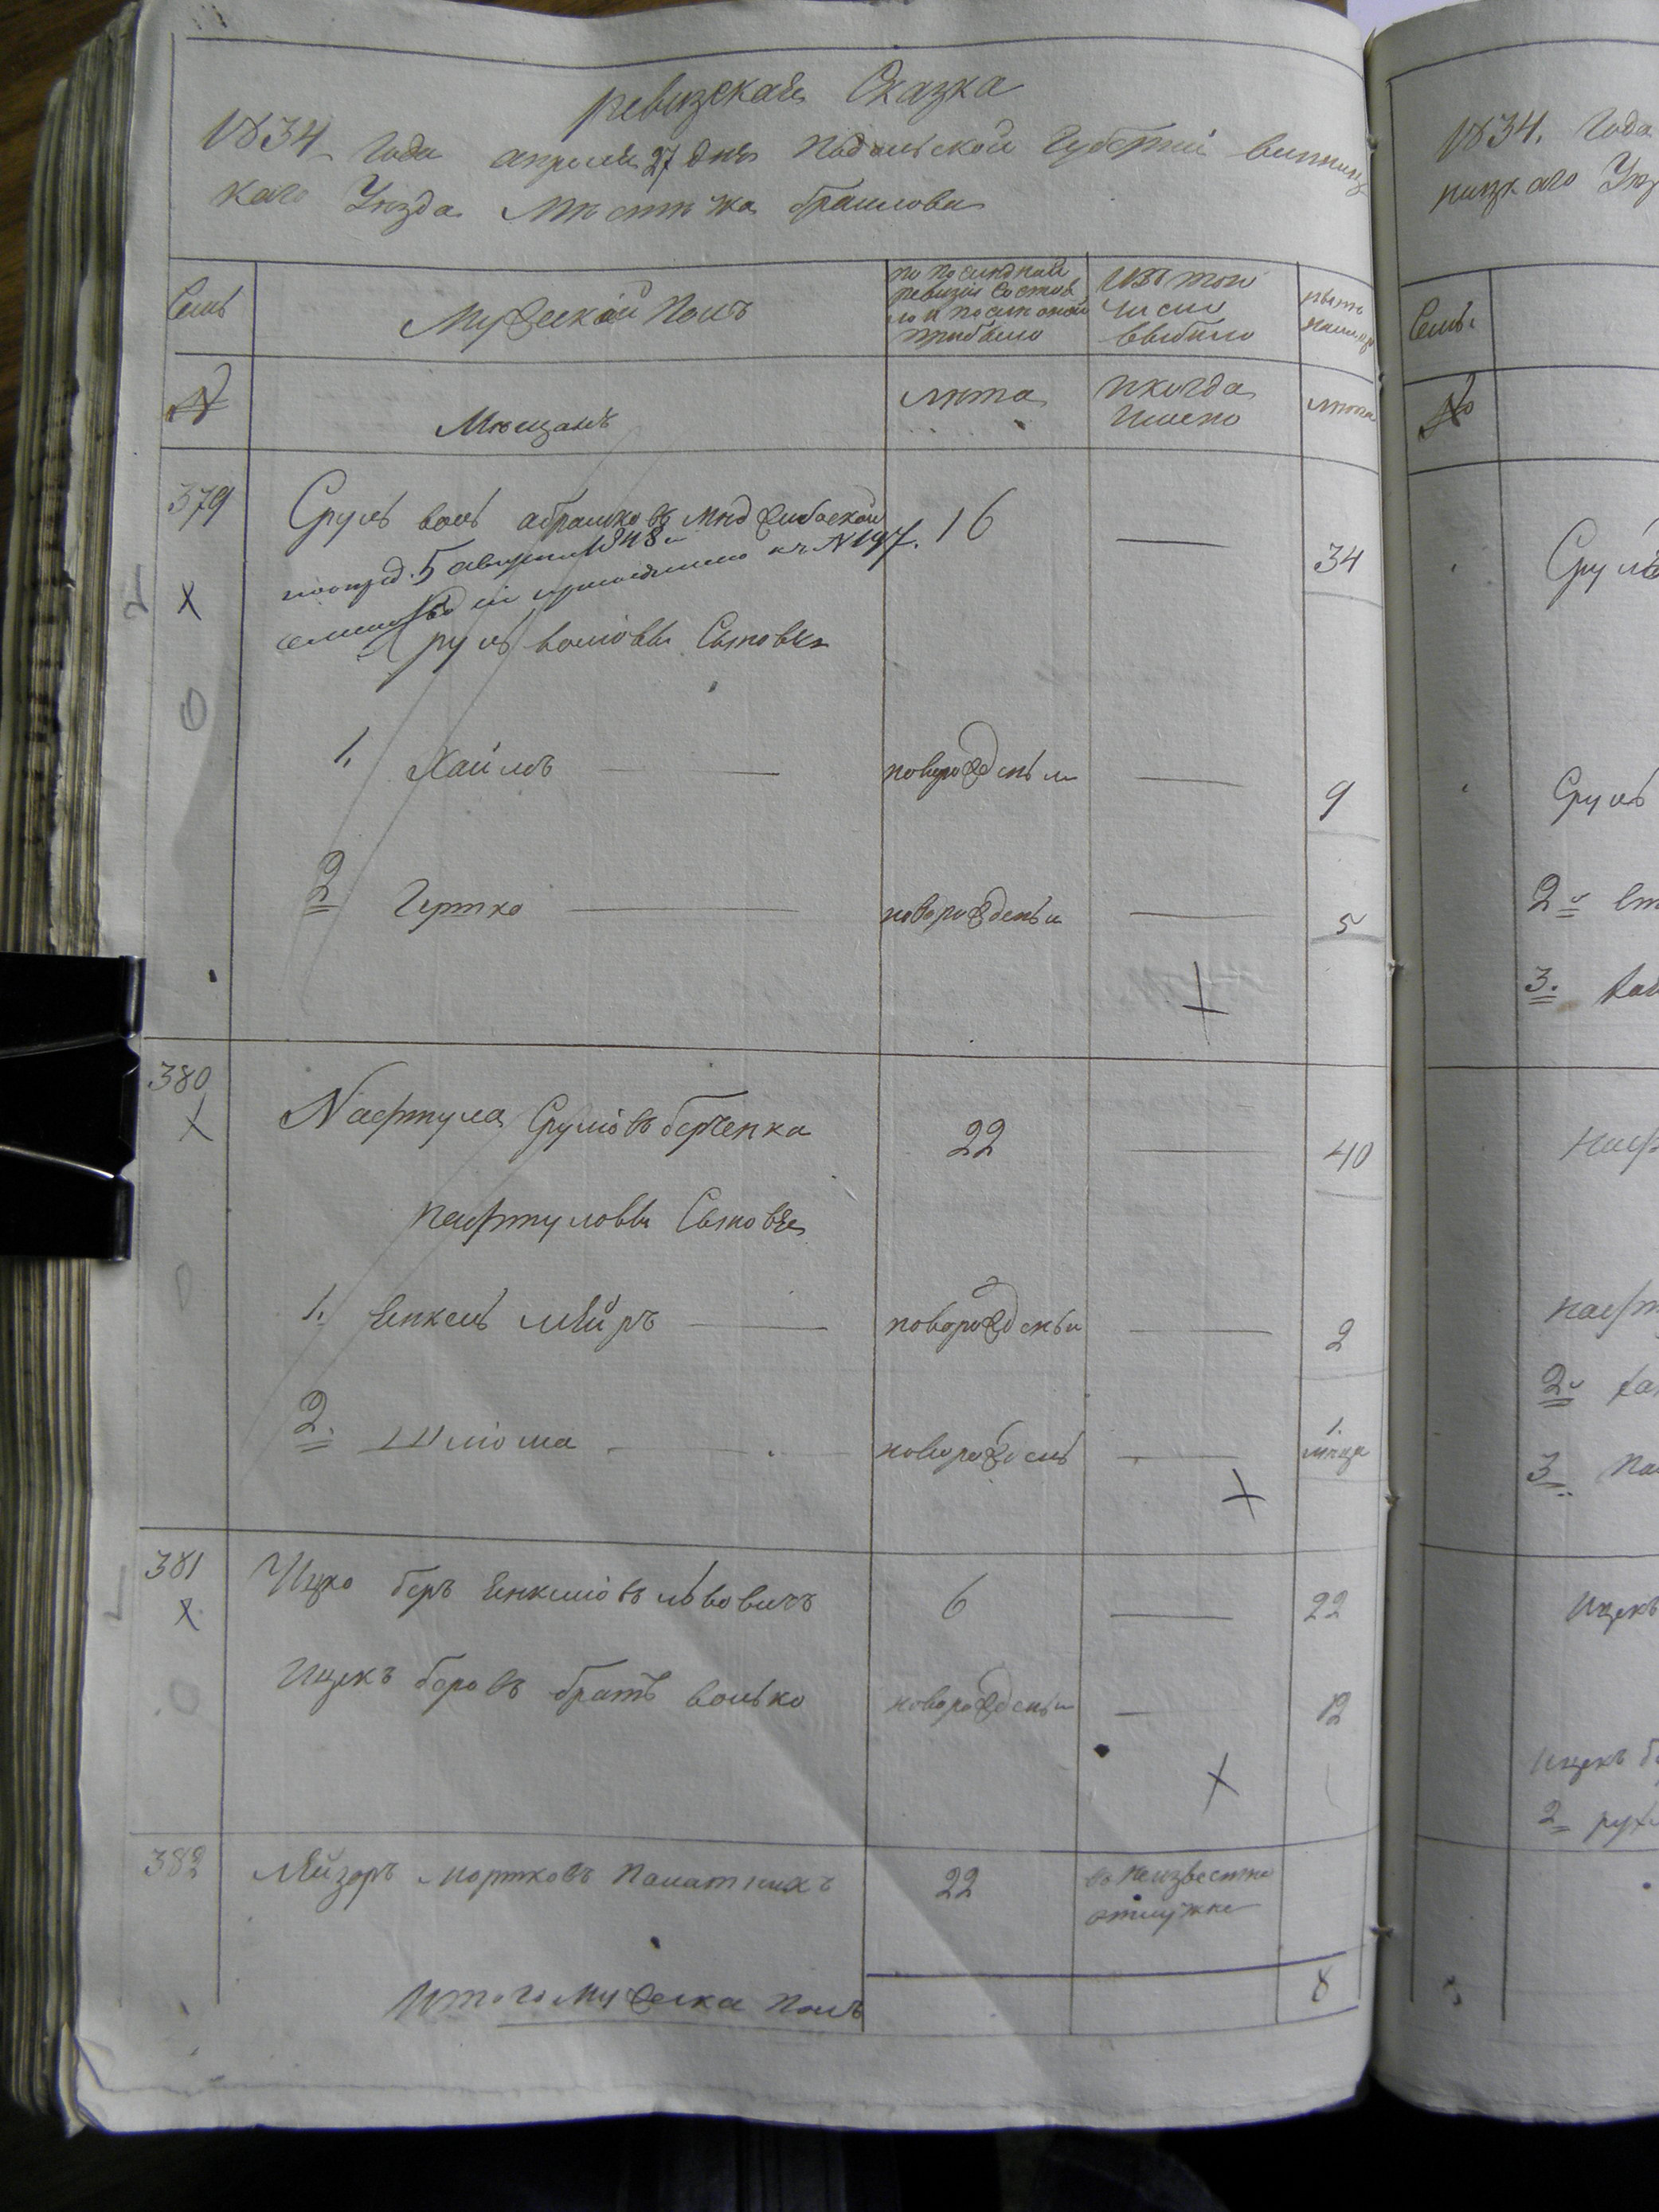 ревизская Сказка
1834 года апреля 27 дня Подольской Губернии винниц
каго Уезда Местечка браилова
Семьи
Мужеский Полъ
по последней
ревизии состоя
ло и после оной
прибыло
Изъ того
числа
выбыло
ныне
налицо
№
Мещанъ
лета
и когда
именно
лета
379
Сруль воль абрамковъ
16
34
5 августа 1848
к № 197.
Сруль вольовы Сыновья
1. Хаимъ
новорожденый
9
2 Гершко
новорожденый
5
380
Нафтула Срулiовъ берченка
22
40
нафтуловы Сыновья
1. Янкель Меиръ
новорожденый
2
2. Шлiома
новорожденъ
1.
месяца
381
Ицко беръ Янкелiовъ львовичъ
6
22
Ицекъ беровъ братъ волько
новорожденый
12
382
Лейзоръ мортковъ Палатникъ
22
въ неизвестной
отлучке
Итого мужеска полъ
8
1834. Года
ницкаго Уез
Семьи
№
Сруль
Сруль
2
3.
наф
нафт
2
3
Ицекъ
Ицекъ бе
2